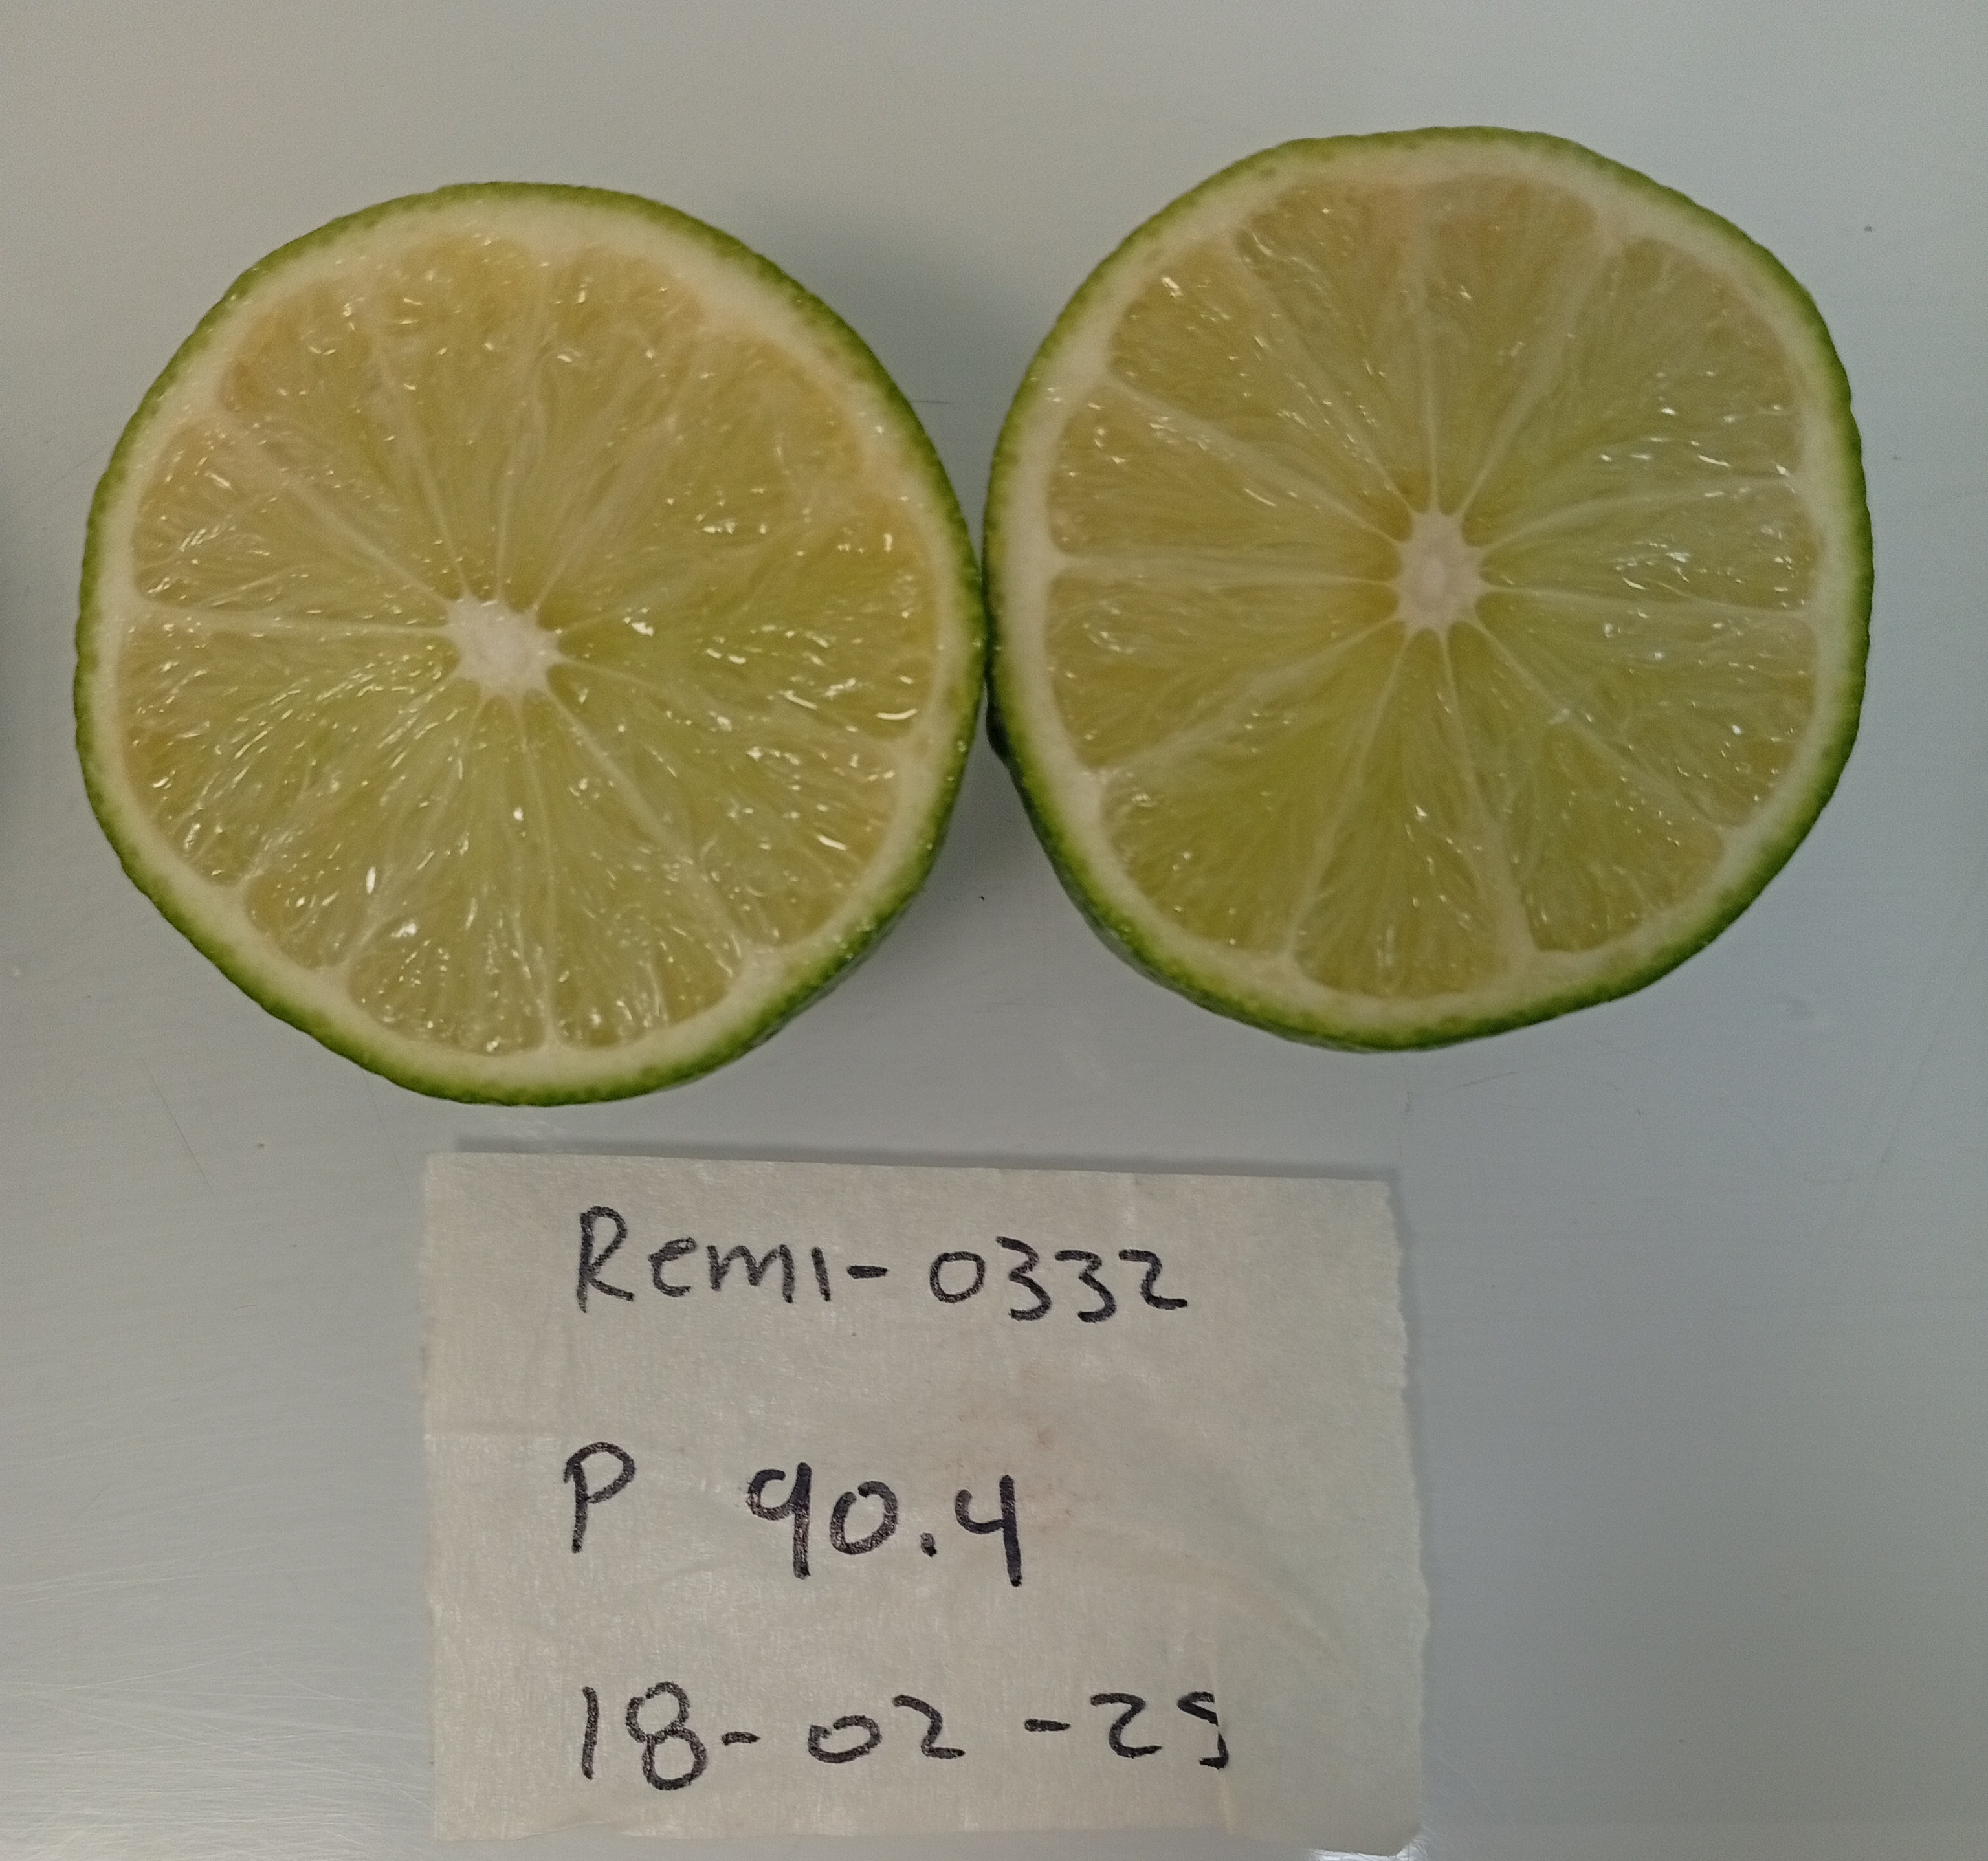 Remi-0332
P 90.4
18-02-25